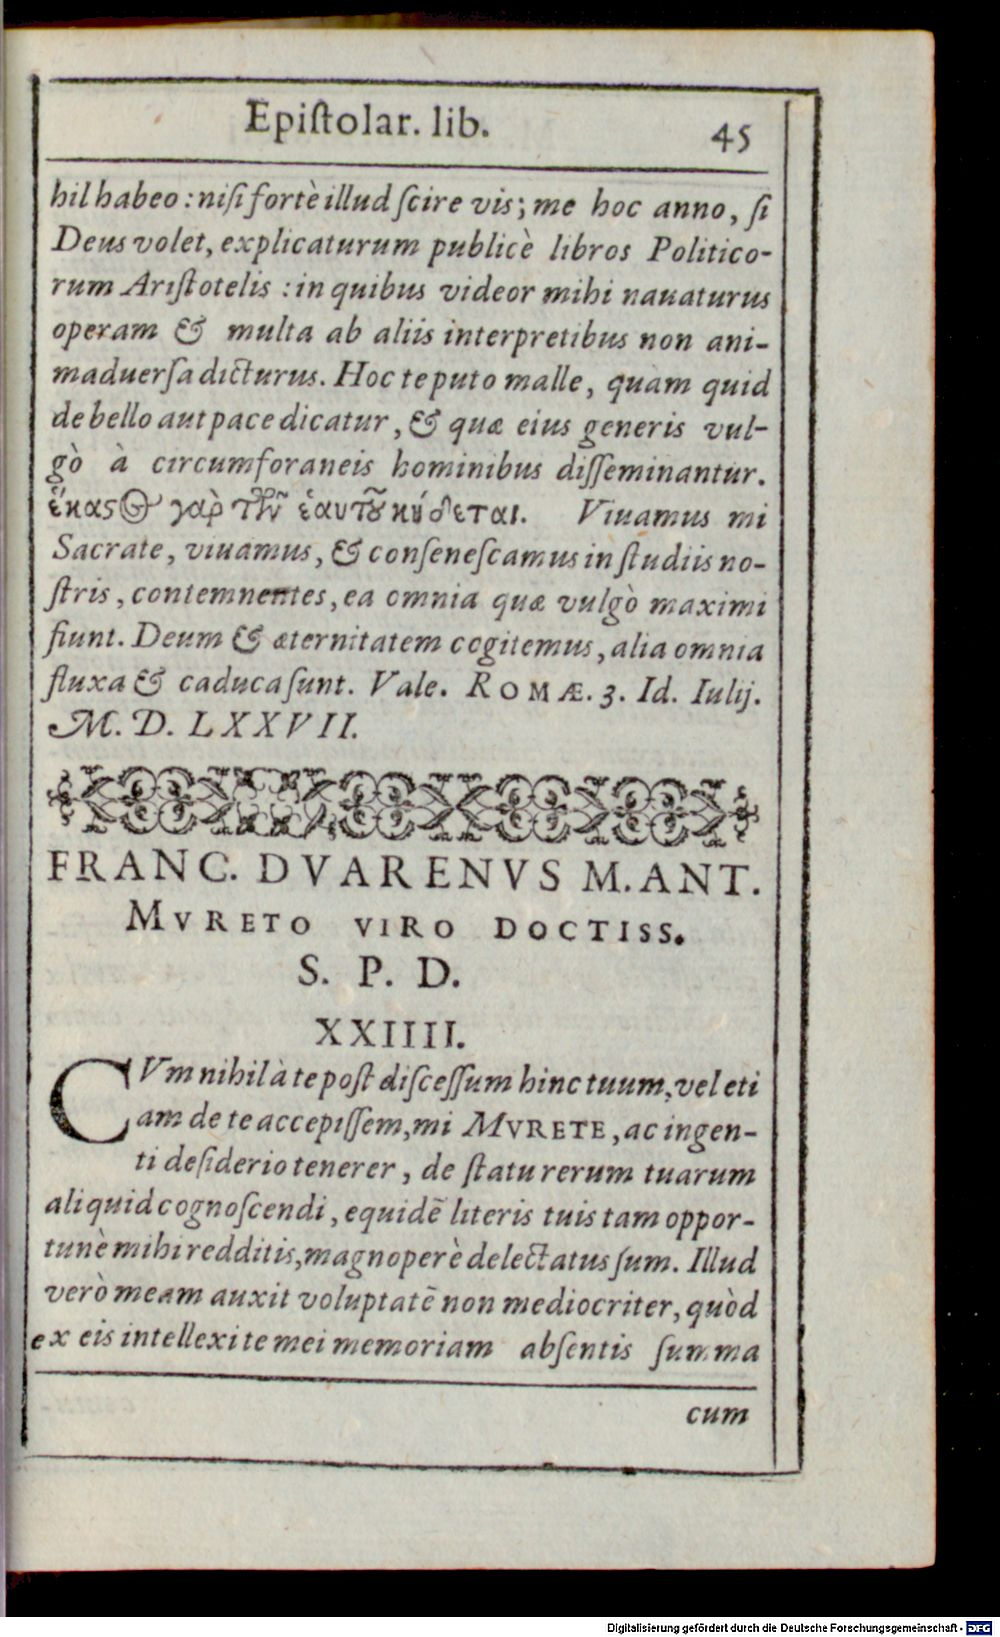 Epiſtolar. lib. 45
hil habeo: niſi fortè illud ſcire vis; me hoc anno, ſi
Deus volet, explicaturum publicè libros Politico-
rum Ariſtotelis: in quibus videor mihi nauaturus
operam & multa ab aliis interpretibus non ani-
maduerſa dicturus. Hoc te puto malle, quàm quid
de bello aut pace dicatur, & quæ eius generis vul-
gò à circumforaneis hominibus diſſeminantur.
ἕκαστος γὰρ τῶν ἑαυτοῦ κήδεται. Viuamus mi
Sacrate, viuamus, & conſeneſcamus in ſtudiis no-
ſtris, contemnentes, ea omnia quæ vulgò maximi
fiunt. Deum & æternitatem cogitemus, alia omnia
fluxa & caduca ſunt. Vale. ROMÆ. 3. Id. Iulij.
M. D. LXXVII.
FRANC. DVARENVS M. ANT.
MVRETO VIRO DOCTISS.
S. P. D.
XXIIII.
CVm nihil à te poſt diſceſſum hinc tuum, vel eti
am de te accepiſſem, mi MVRETE, ac ingen-
ti deſiderio tenerer, de ſtatu rerum tuarum
aliquid cognoſcendi, equidē literis tuis tam oppor-
tunè mihi redditis, magnoperè delectatus ſum. Illud
verò meam auxit voluptatē non mediocriter, quòd
ex eis intellexi te mei memoriam abſentis ſumma
cum
Digitalisierung gefördert durch die Deutsche Forschungsgemeinschaft - DFG